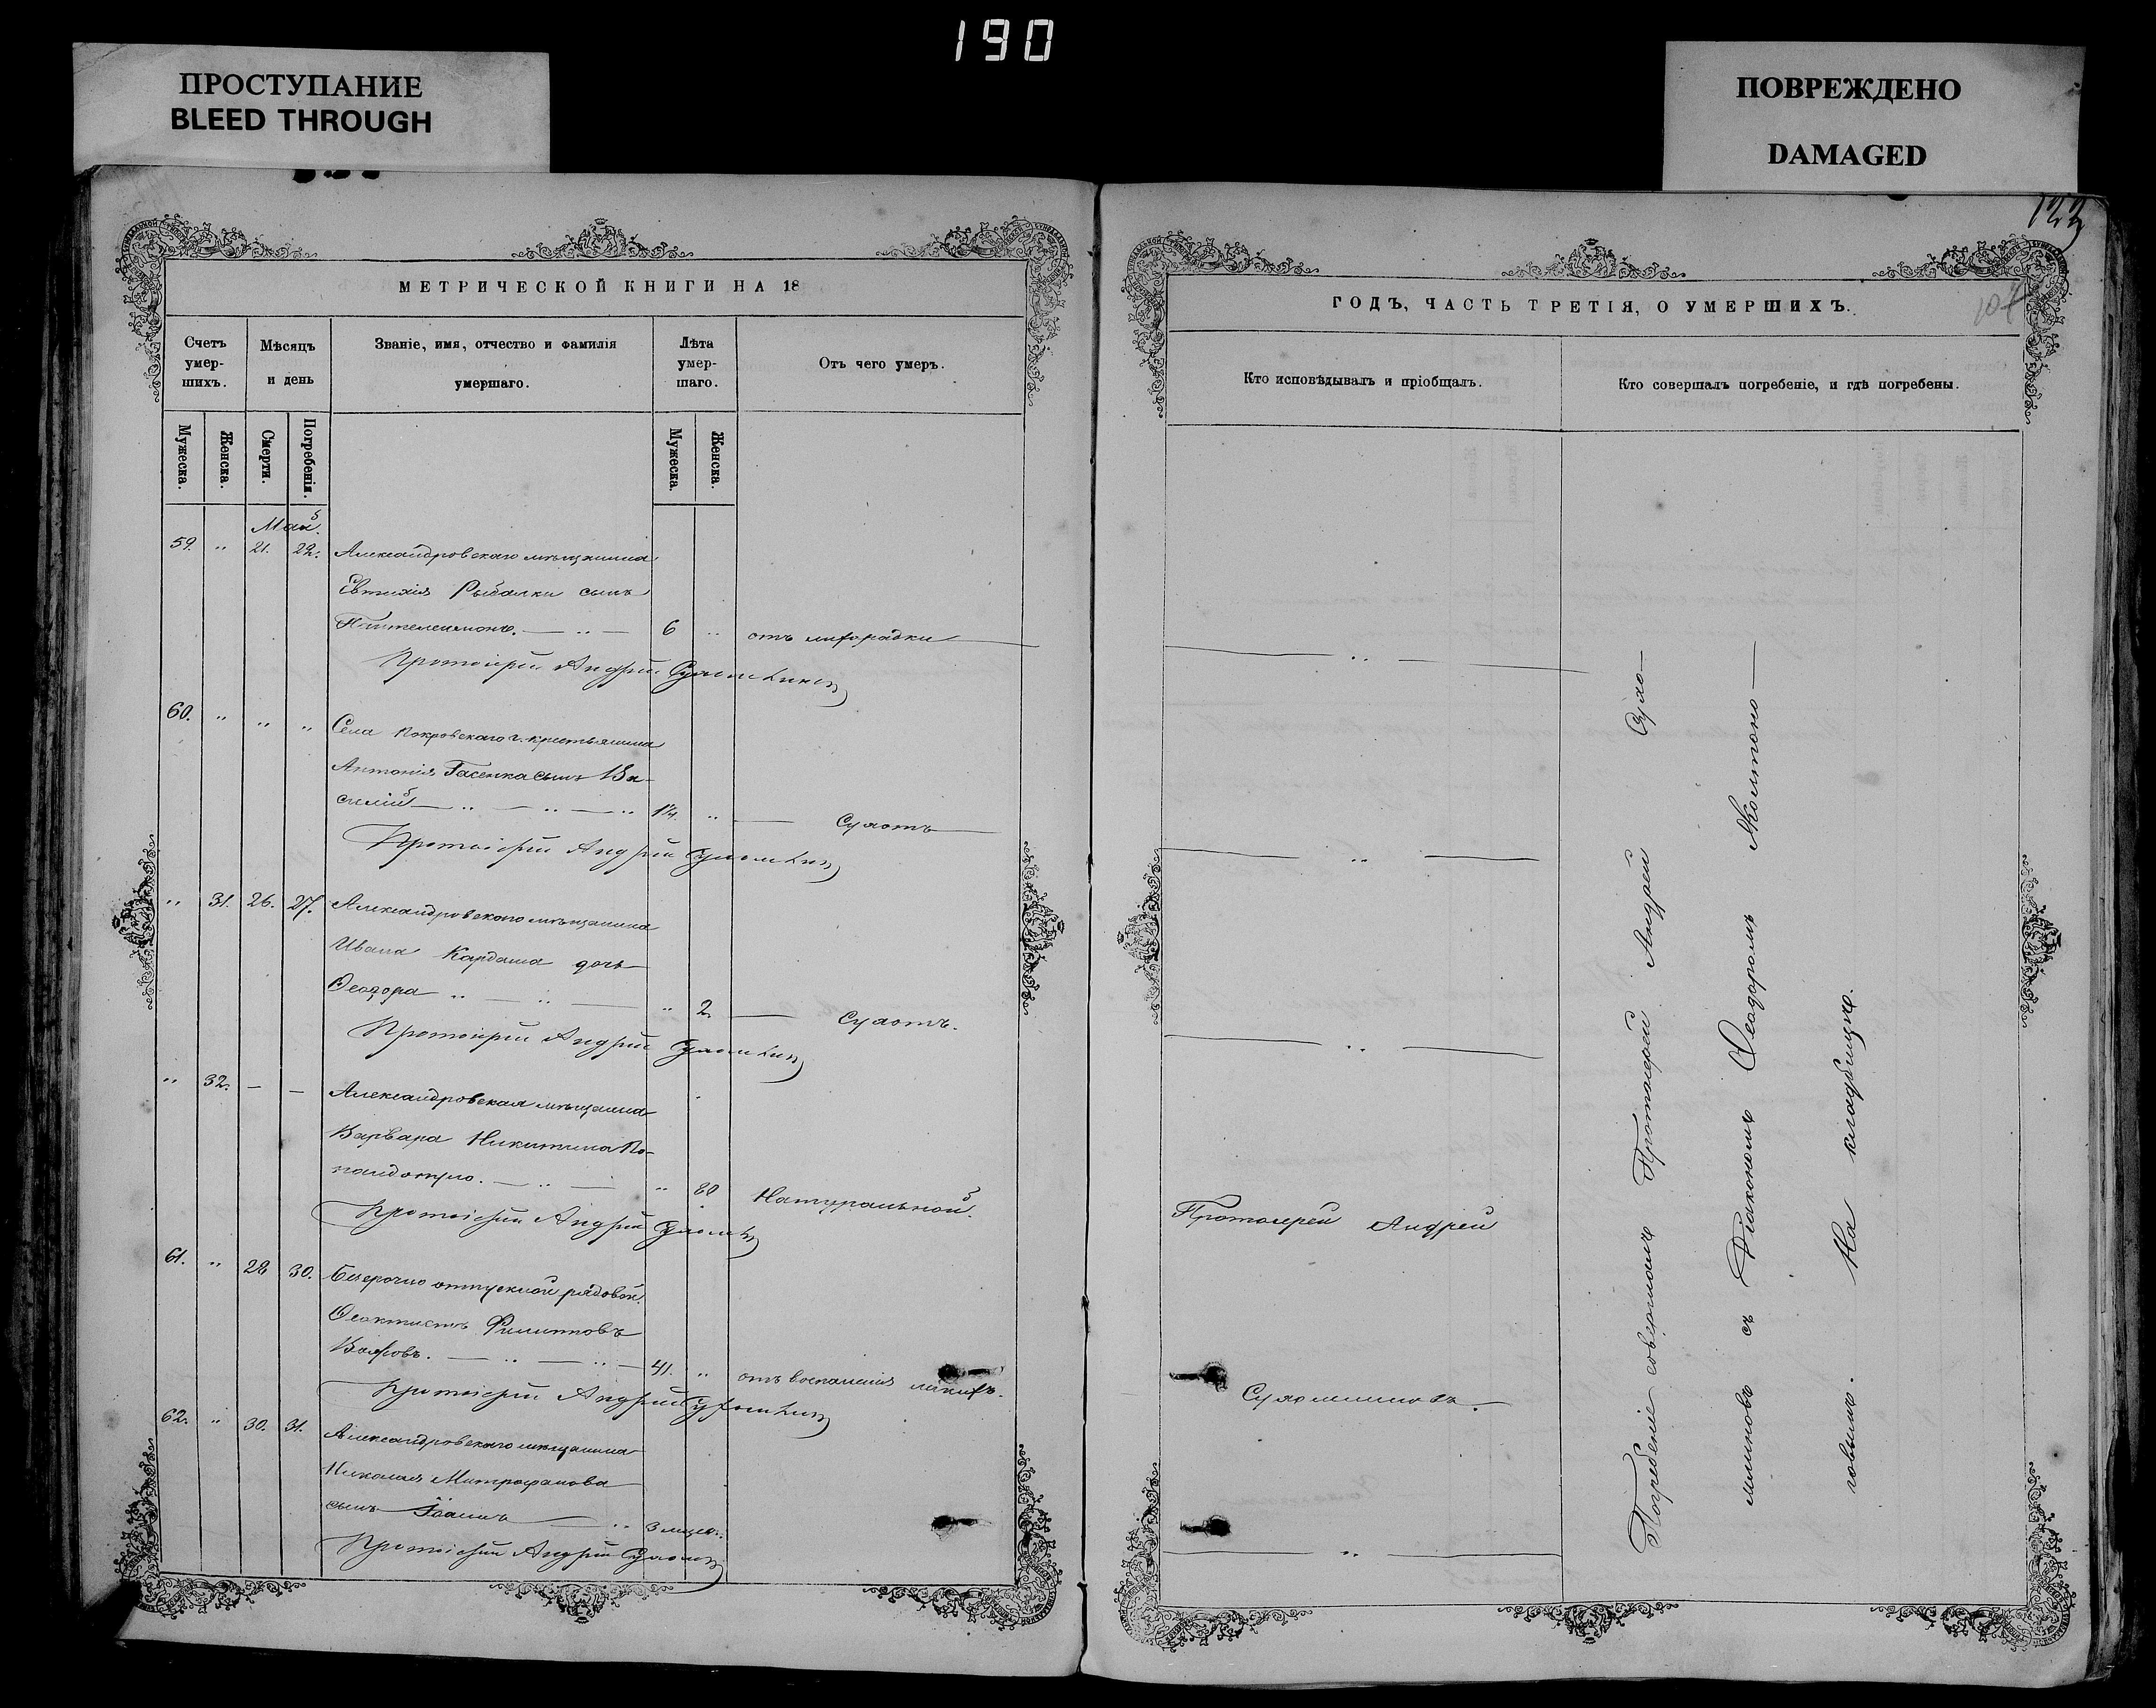 190
ПРОСТУПАНИЕ
BLEED THROUGH
ПОВРЕЖДЕНО
DAMAGED
МЕТРИЧЕСКОЙ КНИГИ НА 18
Счетъ умер-шихъ.
Мѣсяцъ и день
Званіе, имя, отчество и фамилія умершаго.
Лѣта умер-шаго.
Отъ чего умеръ.
Мужеска.
Женска.
Смерти.
Погребенія.
Мужеска.
Женска.
Май.
59. " 21. 22. Александровскаго мѣщанина
Евтихія Рыбалки сынъ
Пантелеимонъ. 6 " отъ лихорадки
Протоіерей Андрей Сухомлинов
60. " " " Села Покровскаго г. крестьянина
Антонія Гасенка сынъ Ва-
силій " " " 1¼. " Сухотъ
Протоіерей Андрей Сухомлинов
" 31. 26. 27. Александровскаго мѣщанина
Ивана Кардаша дочь
Ѳеодора " " " 2. Сухотъ.
Протоіерей Андрей Сухомлинов
" 32. — — Александровская мѣщанка
Варвара Никитина По-
" " 80 Натуральной.
Протоіерей Андрей
61. " 28 30. Безсрочно отпускной рядовой
Ѳеоктистъ Филипповъ
" " 41. " отъ воспаленія легкихъ.
Протоіерей Андрей Сухомлинов
62. " 30. 31. Александровскаго мѣщанина
Николая Митрофанова
сынъ Іоаннъ " 3 мѣсяц.
Протоіерей Андрей
122
107
ГОДЪ, ЧАСТЬ ТРЕТІЯ, О УМЕРШИХЪ.
Кто исповѣдывалъ и пріобщалъ.
Кто совершалъ погребеніе, и гдѣ погребены.
Протоіерей Андрей
Сухомлиновъ.
Погребеніе совершалъ Протоіерей Андрей Сухо-
млиновъ съ Діакономъ Ѳеодоромъ Жолтоно-
говымъ. На кладбищѣ.